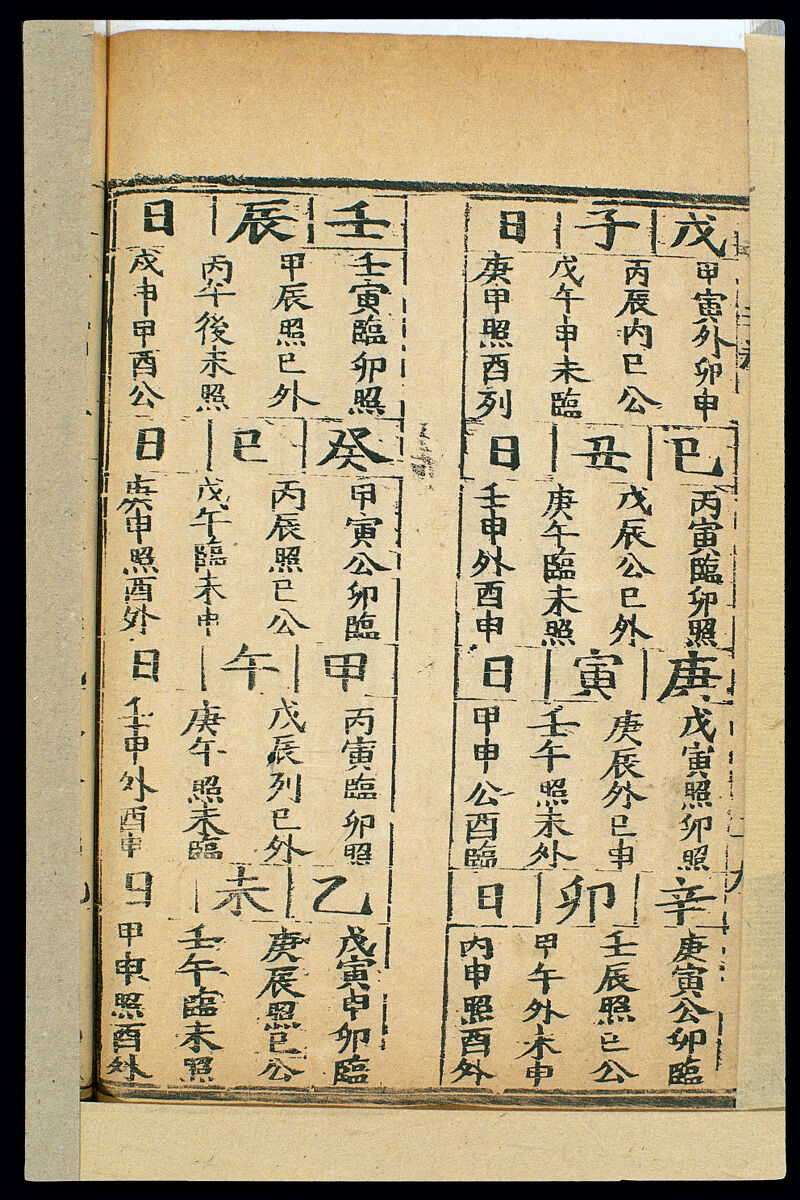 戊子日
甲寅外卯申
丙辰内巳公
戊午申未臨
庚申照酉列
巳丑日
丙寅臨卯照
戊辰公巳外
庚午臨未照
壬申外酉申
庚寅日
戊寅照卯照
庚辰外巳申
壬午照未外
甲申公酉臨
辛卯日
庚寅公卯臨
壬辰照巳公
甲午外未申
丙申照酉外
壬辰日
壬寅臨卯照
甲辰照巳外
丙午後未照
戍申甲酉公
癸巳日
甲寅公卯臨
丙辰照巳公
戊午臨未申
庚申照酉外
甲午日
丙寅臨卯照
戊辰列巳外
庚午照未臨
壬申外酉申
乙未日
戊寅申卯臨
庚辰照巳公
壬午臨未照
甲申照酉外